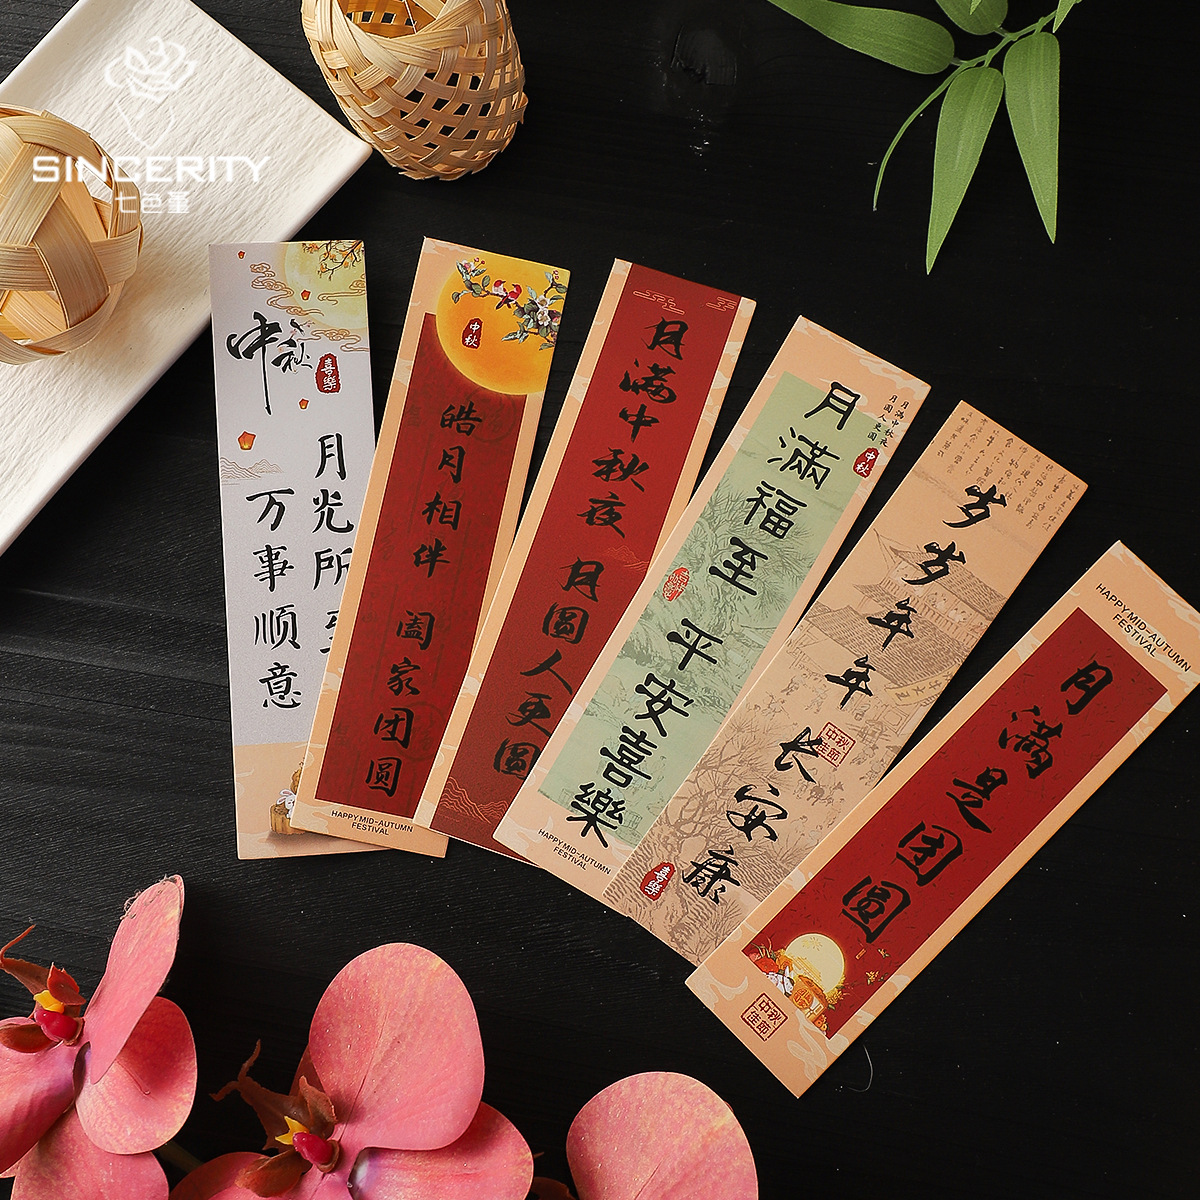 SINCERITY
七色堇
中秋
喜樂
月光所至
万事顺意
中秋
皓月相伴 阖家团圆
HAPPY MID-AUTUMN
FESTIVAL
月满中秋夜 月圆人更圆
月满中秋夜
月圆人更圆
中秋
月滿福至 平安喜樂
HAPPY MID-AUTUMN
FESTIVAL
岁岁年年 长安康
中秋
佳節
喜樂
HAPPY MID-AUTUMN
FESTIVAL
月满是团圆
中秋
佳節